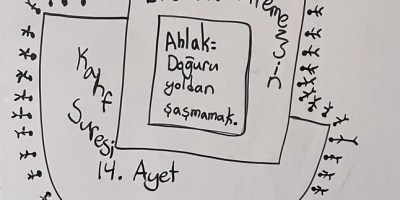 Ahlak=
Doğuru
yoldan
şaşmamak.
Kahf
Suresi
14. Ayet